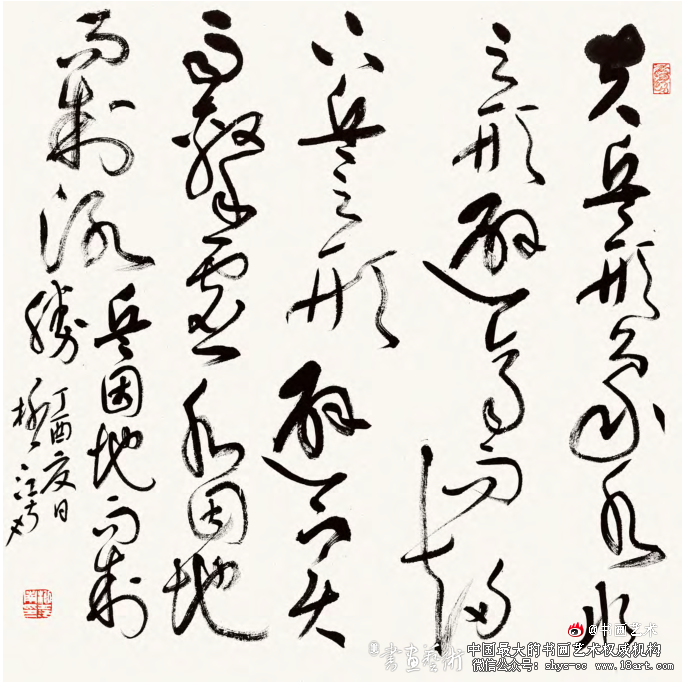 夫兵形象水水
之形避高而趨
下兵之形避实
而擊虛水因地
而制流
兵因地而制
勝
丁酉夏日
@书画艺术
書畫藝術
中国最大的书画艺术权威机构
微信公众号: shys-cc www.18art.com